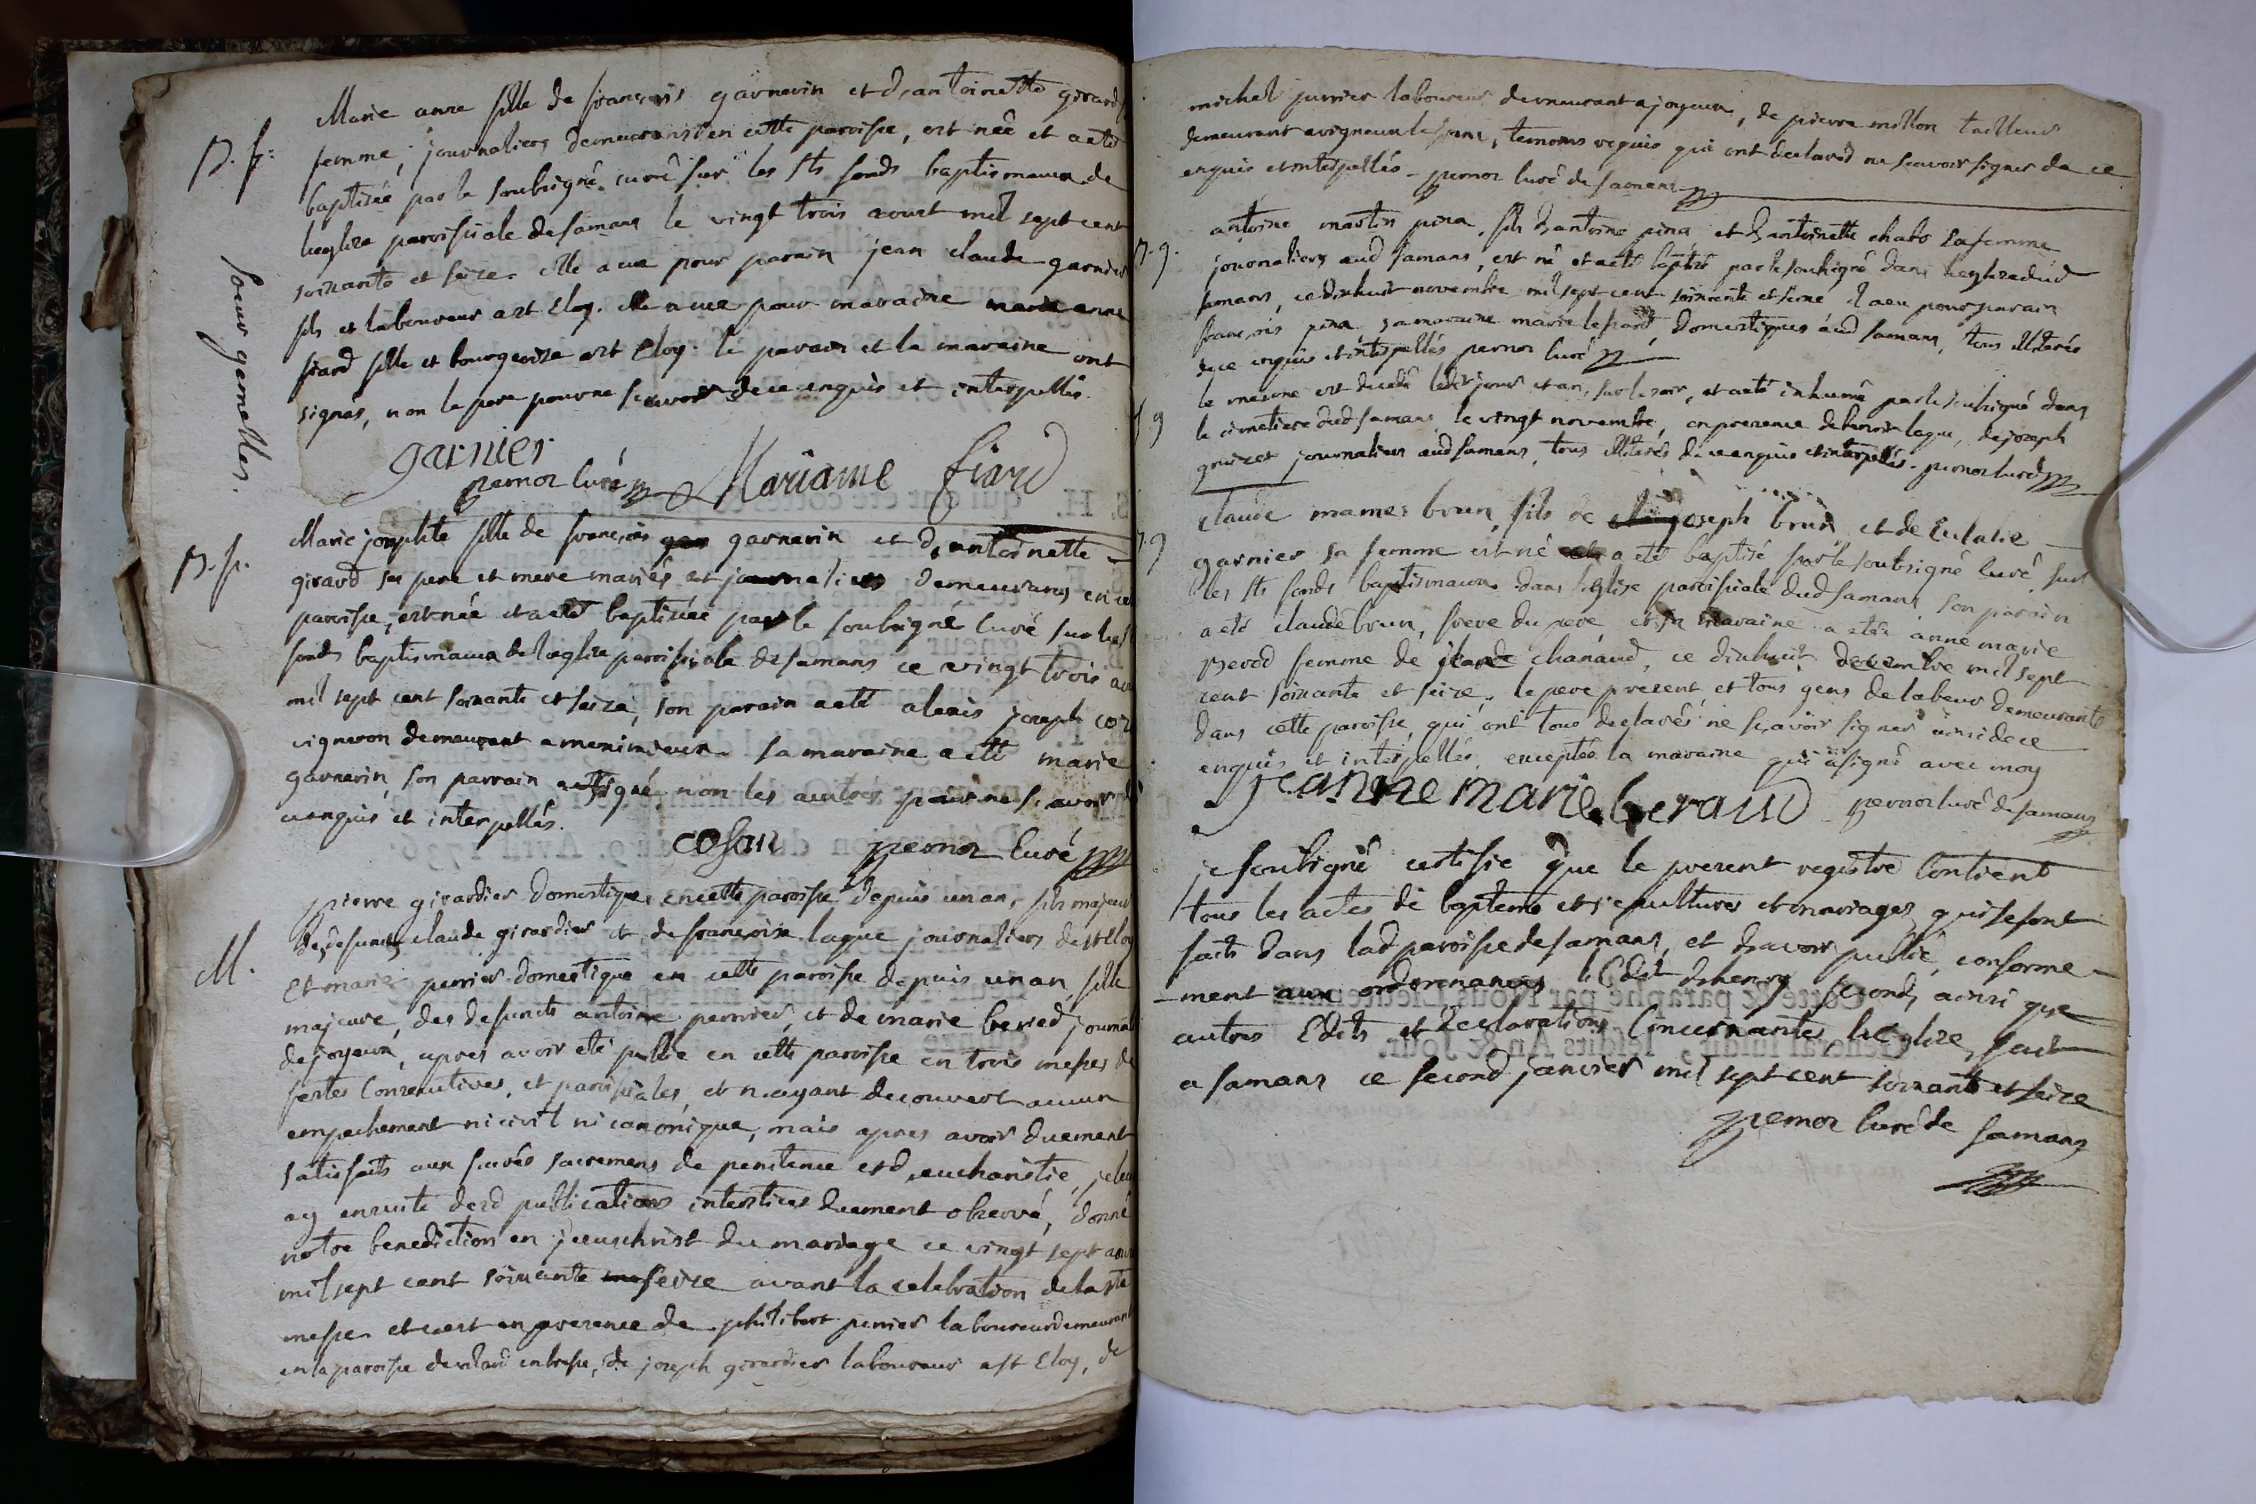 Marie anne fille de françois garnerin et d'antoinette girard sa
B. f. femme, journaliers demeurans en cette paroisse, est née et a eté
baptisée par le soubsigné curé sur les Sts fonds baptismaux de
l'eglize paroissiale de samans le vingt trois aoust mil sept cent
soixante et seize. elle a eue pour parain jean claude garnier
fils et laboureur a st Eloy. elle a eue pour maraine marie anne
fiard fille et bourgeoise a st Eloy. le parain et la maraine ont
signés, non le pere pour ne scavoir de ce enquis et interpellés.
soeurs gemelles.
garnier
pernoz curé Mariame fiard
Marie josephte fille de françois garnerin et d'antoinette
B. f. girard ses pere et mere mariés et journaliers demeurans en cette
paroisse, est née et a eté baptisée par le soubsigné curé sur les
fonds baptismaux de l'eglize paroissiale de samans ce vingt trois aou
mil sept cent soixante et seize, son parain a eté alexis joseph
vigneron demeurant a meximieux. sa maraine a eté marie
garnerin, son parrain a signé non les autres pour ne scavoir de
ce enquis et interpellés.
cosan pernoz curé
pierre girardier domestique en cette paroisse depuis un an, fils majeur
des defunts claude girardier et de françoise lague journaliers de st Eloy
M. Et marie perrier domestique en cette paroisse depuis un an, fille
majeure, des defunts antoine perrier, et de marie beried journal
de joyeux, apres avoir eté publié en cette paroisse en trois messes de
festes consecutives, et paroissiales, et n'ayant decouvert aucun
empechement ni civil ni canonique, mais apres avoir duement
satisfaits aux sacrés sacremens de penitence et d'eucharistie, je leur
ay ensuite desd publications interstices duement observé, donné
notre benediction en jesuschrist du mariage ce vingt sept
mil sept cent soixante seize avant la celebration de la ste
messe. et c'est en presence de philibert perrier laboureur demeurant
en la paroisse de vilard en bresse, de joseph girardier laboureur a st Eloy, de
michel perrier laboureur demeurant a joyeux, de pierre millon tailleur
demeurant a rigneux le franc, temoins requis qui ont declarés ne scavoir signer de ce
enquis et interpellés. pernoz curé de samans
B. g. antoine martin pina, fils d'antoine pina et d'antoinette chato sa femme
journaliers aud samans, est né et a eté baptisé par le soubsigné dans l'eglize dud
samans, ce dixhuit novembre mil sept cent soixante et seize il a eu pour parain
françois pina sa maraine marie domestiques aud samans, tous illiterés
de ce enquis et interpellés pernoz curé
le mesme est decedé led jour et an, sur le soir, et a eté inhumé par le soubsigné dans
S g le cimetiere dud samans le vingt novembre, en presence de benoit lague, de joseph
journaliers aud samans, tous illiterés de ce enquis et interpellés. pernoz curé
claude mames brun, fils de joseph brun et de Eulalie
B. g garnier sa femme est né a eté baptisé par le soubsigné curé, sur
les Sts fonds baptismaux dans l'eglise paroissiale dud samans son parain
a eté claude brun, frere du pere et sa maraine a etée anne marie
berod femme de chanaud, ce dixhuit decembre mil sept
cent soixante et seize, le pere present et tous gens de labeur demeurants
dans cette paroisse, qui ont tous declarés ne sçavoir signer ainsi de ce
enquis et interpellés, exceptée la maraine qui a signé avec moy
jeanne marie beraud pernoz curé de samans
je soubsigné certifie que le present registre contient
tous les actes de bapteme et sepultures et mariages qui se sont
faits dans lad paroisse de samans, et d'avoir publié, conforme-
-ment aux ordonnances l'Edit d'henry second, ainsi que
autres Edits et declarations concernantes l'Eglize, fait
a samans ce second janvier mil sept cent soixante et seize
pernoz curé de samans